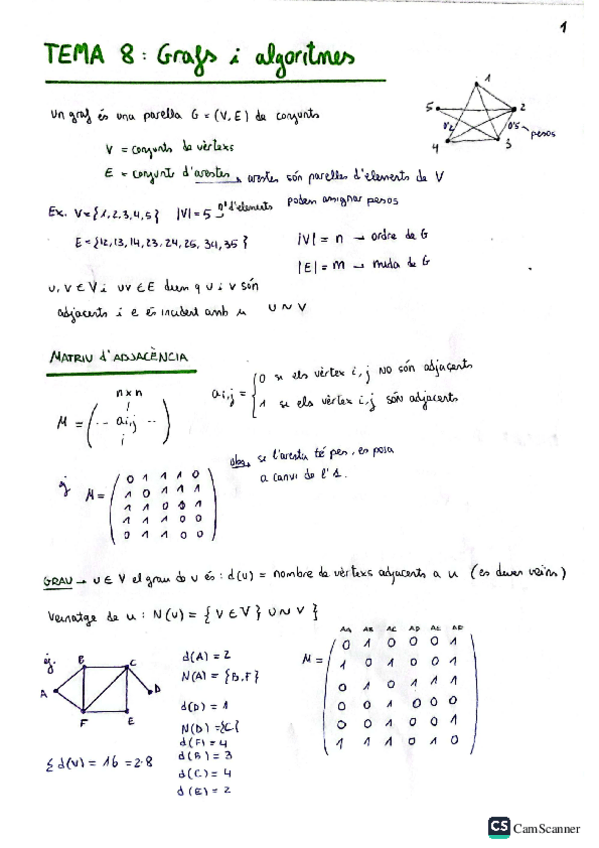 1
TEMA 8: Grafs i algoritmes
Un graf és una parella G = (V, E) de conjunts
V = conjunts de vèrtexs
E = conjunt d'arestes → arestes són parelles d'elements de V
podem assignar pesos
1
5 2
0'2 0'5 → pesos
4 3
Ex. V = {1,2,3,4,5} |V| = 5 → nº d'elements
E = {12, 13, 14, 23, 24, 25, 34, 35}
|V| = n → ordre de G
|E| = m → mida de G
u, v ∈ V i uv ∈ E diem q u i v són
adjacents i e és incident amb u u ∼ v
MATRIU d'ADJACÈNCIA
n x n
M = ( -- ai,j -- )
i
ai,j = { 0 si els vèrtex i, j NO són adjacents
1 si els vèrtex i, j són adjacents
obs. si l'aresta té pes, es posa
a canvi de l'1.
ej M =
0 1 1 1 0
1 0 1 1 1
1 1 0 0 1
1 1 1 0 0
0 1 1 0 0
GRAU → u ∈ V el grau de u és: d(u) = nombre de vèrtexs adjacents a u (es deuen veïns)
Veïnatge de u: N(u) = { v ∈ V } u ∼ v }
ej.
A B C D E F
d(A) = 2
N(A) = {B, F}
d(D) = 1
N(D) = {C}
d(F) = 4
d(B) = 3
d(C) = 4
d(E) = 2
Σ d(v) = 16 = 2·8
AA AB AC AD AE AF
M =
0 1 0 0 0 1
1 0 1 0 0 1
0 1 0 1 1 1
0 0 1 0 0 0
0 0 1 0 0 1
1 1 1 0 1 0
CS CamScanner